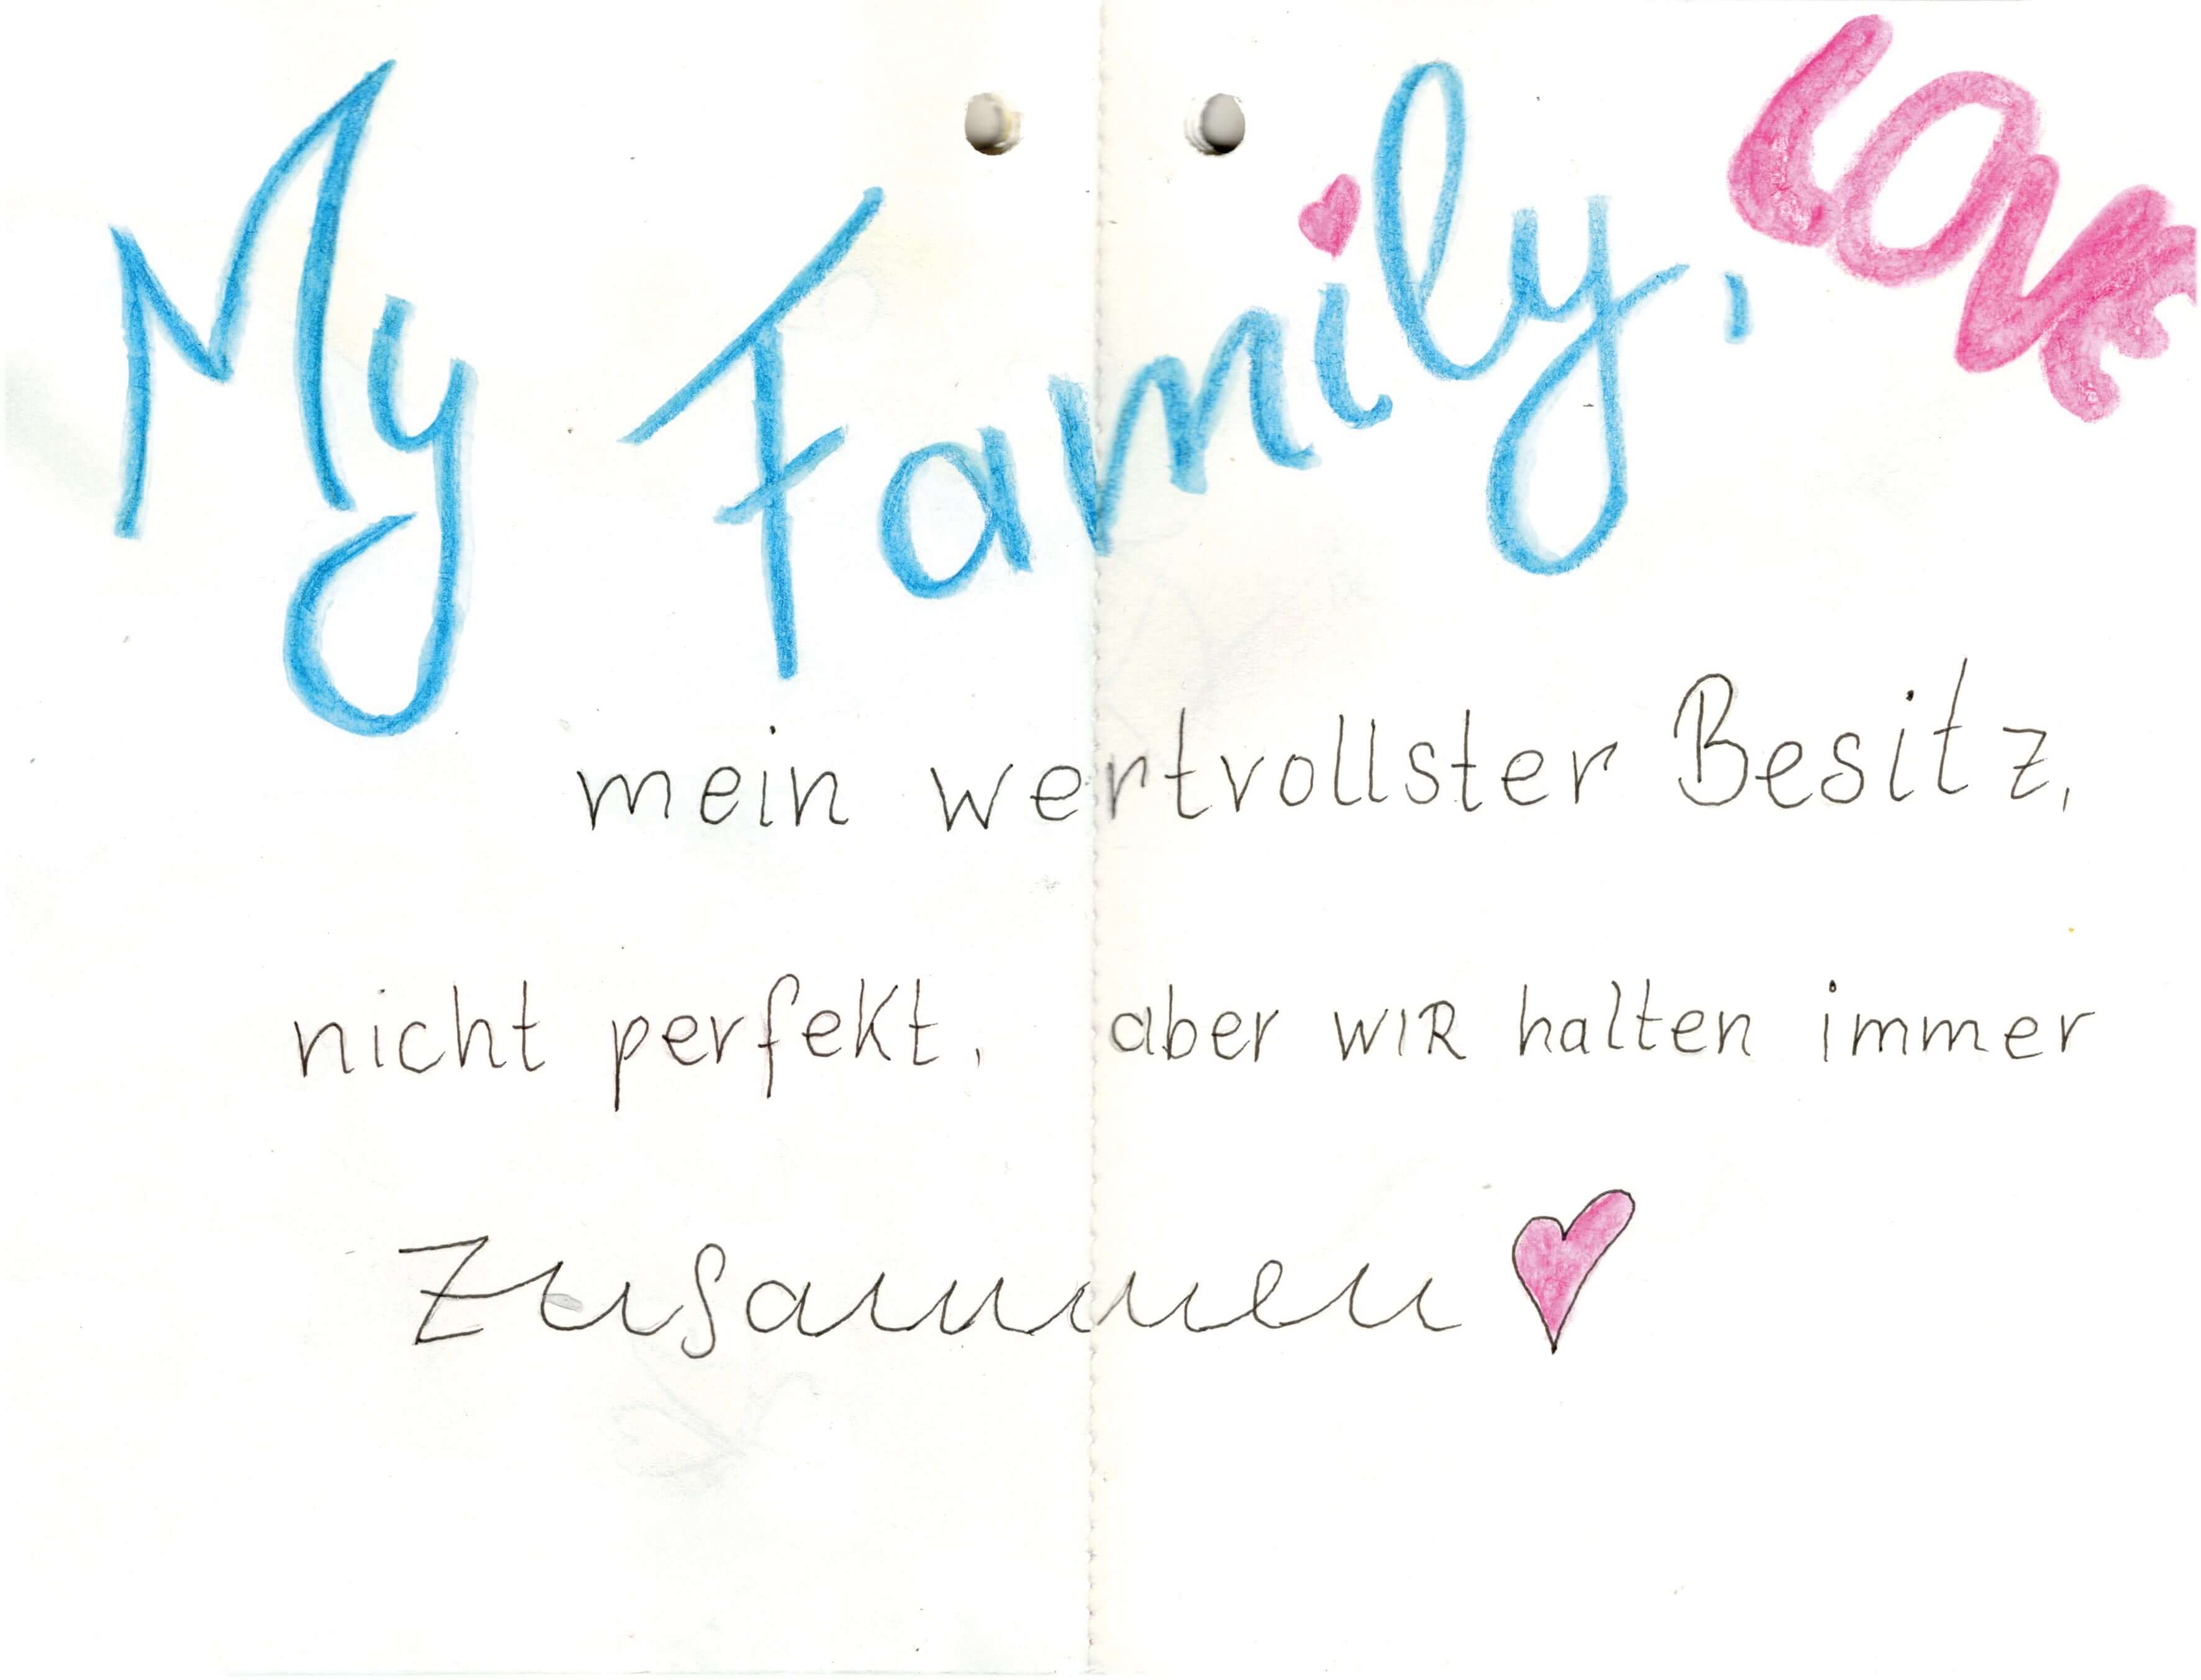 My Family, LOVE
mein wertvollster Besitz,
nicht perfekt, aber WIR halten immer
Zusammen